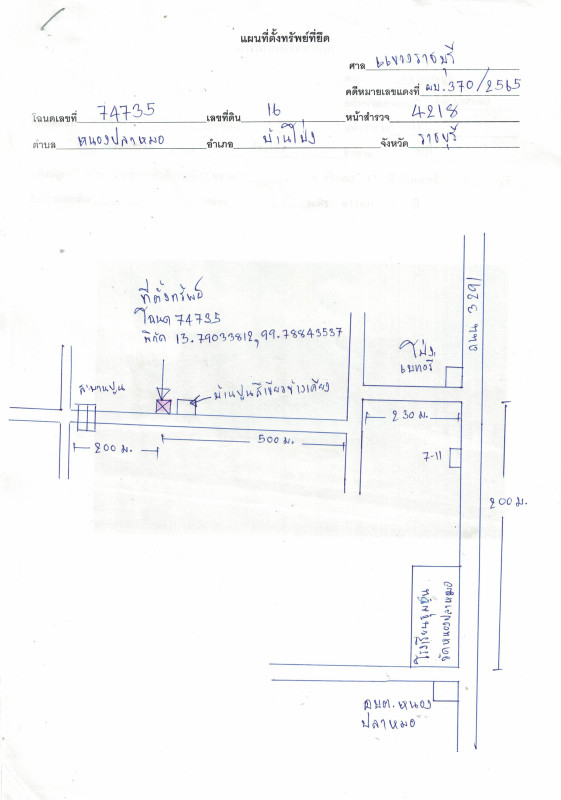 แผนที่ตั้งทรัพย์ที่ยึด
ศาล แขวงราชบุรี
คดีหมายเลขแดงที่ ผบ.370/2565
โฉนดเลขที่ 74735 เลขที่ดิน 16 หน้าสำรวจ 4218
ตำบล หนองปลาหมอ อำเภอ บ้านโป่ง จังหวัด ราชบุรี
ถนน 3291
ที่ตั้งทรัพย์
โฉนด 74735
พิกัด 13.79033812,99.78843537
โป่ง
เบทตรี
สะพานปูน
บ้านปูนสีเขียวข้างเคียง
230 ม.
500 ม.
200 ม.
7-11
200 ม.
โรงเรียนชุมชน
วัดหนองปลาหมอ
อบต.หนอง
ปลาหมอ